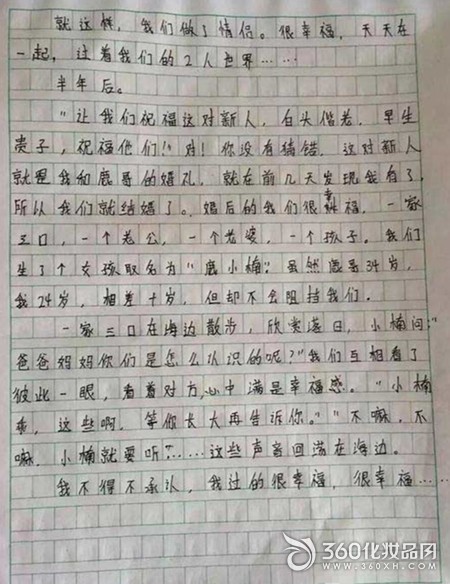 就这样，我们做了情侣。很幸福，天天在
一起，过着我们的2人世界……
半年后。
"让我们祝福这对新人，白头偕老，早生
贵子，祝福他们！"对！你没有猜错，这对新人
就是我和鹿哥的婚礼，就在前几天发现我有了，
所以我们就结婚了。婚后的我们很幸福，一家
三口，一个老公，一个老婆，一个孩子。我们
生了个女孩取名为"鹿小楠"。虽然鹿哥34岁，
我24岁，相差十岁，但却不会阻挡我们。
一家三口在海边散步，欣赏落日，小楠问："
爸爸妈妈你们是怎么认识的呢？"我们互相看了
彼此一眼，看着对方，心中满是幸福感。"小楠
乖，这些啊，等你长大再告诉你。""不嘛，不
嘛，小楠就要听"……这些声音回荡在海边。
我不得不承认，我过的很幸福，很幸福……
360化妆品网
www.360xh.com